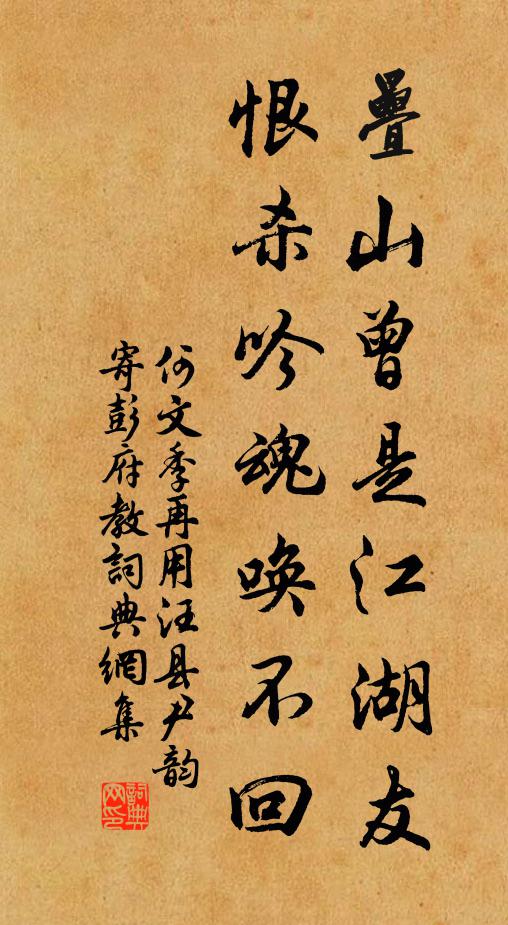 疊山曾是江湖友
恨杀吟魂唤不回
何文季再用汪县尹韵
寄彭府教詞典網集
詞典网印